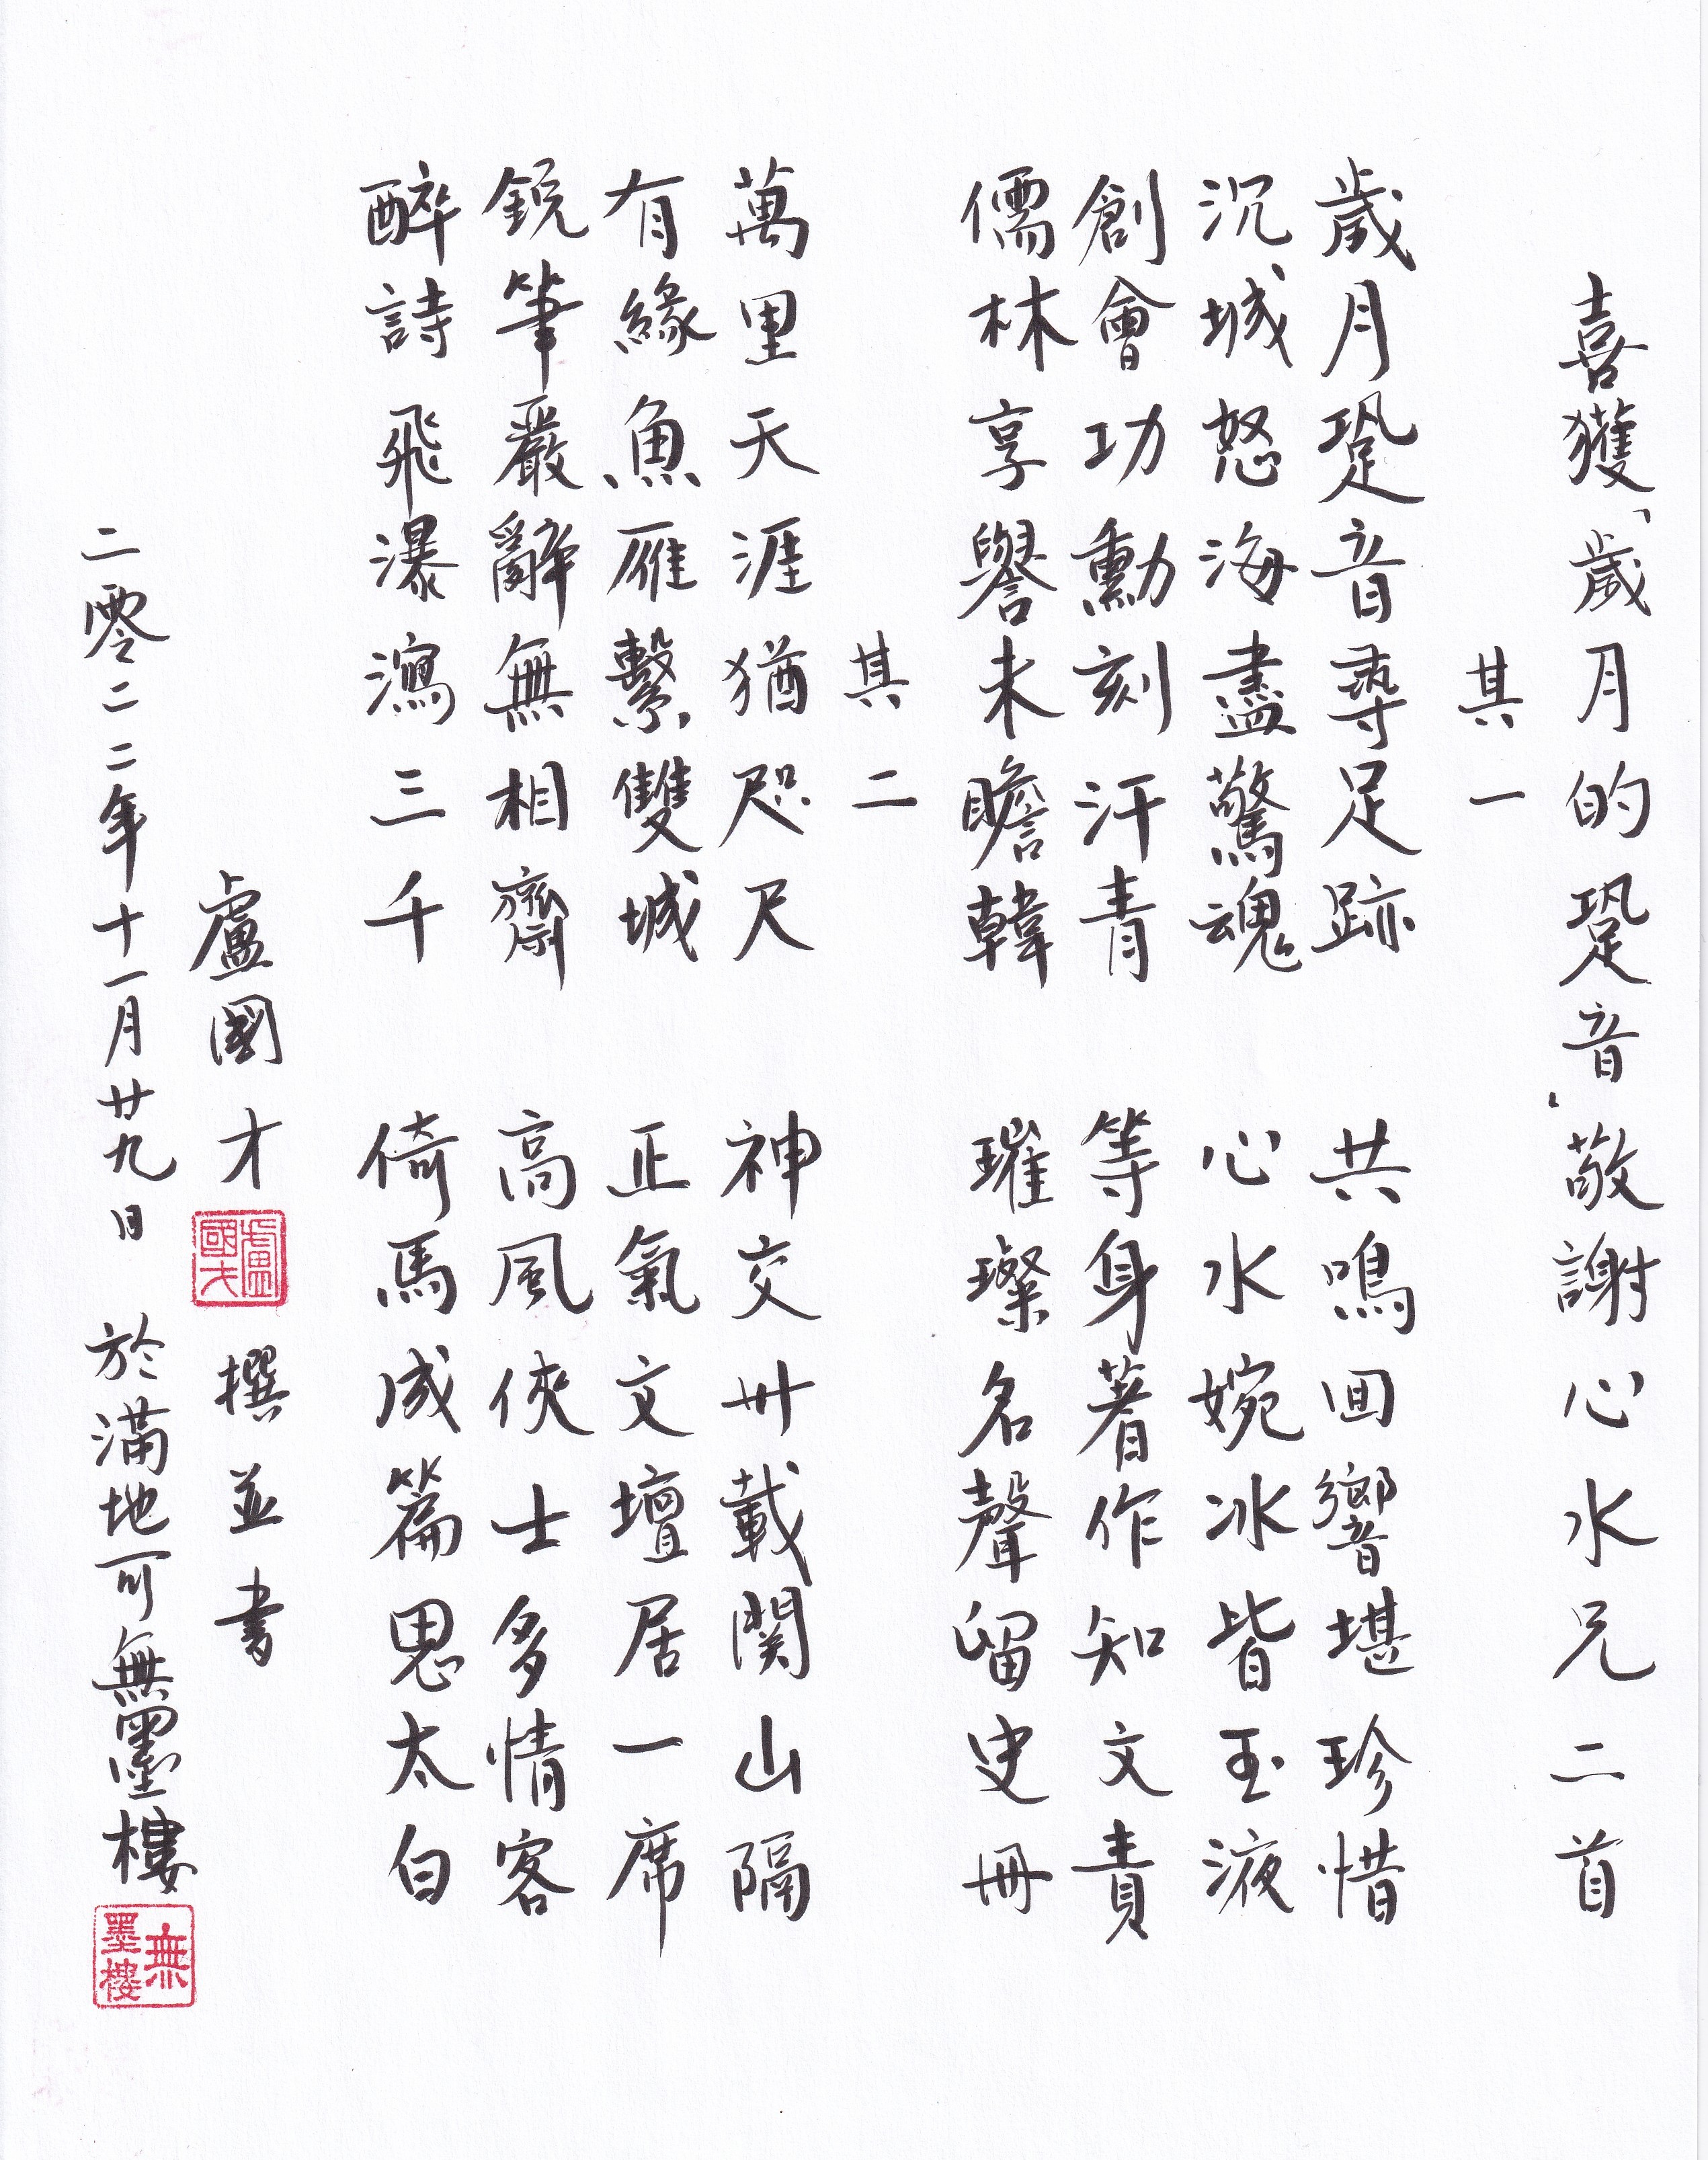 喜獲「歲月的跫音」敬謝心水兄二首
其一
歲月跫音尋足跡　共鳴回響堪珍惜
沉城怒海盡驚魂　心水婉冰皆玉液
創會功勳刻汗青　等身著作知文責
儒林享譽未瞻韓　璀璨名聲留史冊
其二
萬里天涯猶咫尺　神交卅載関山隔
有緣魚雁繫雙城　正氣文壇居一席
銳筆嚴辭無相齋　高風俠士多情客
醉詩飛瀑瀉三千　倚馬成篇思太白
盧國才　撰並書
盧國才
二零二二年十一月廿九日　於滿地可無墨樓
無墨樓